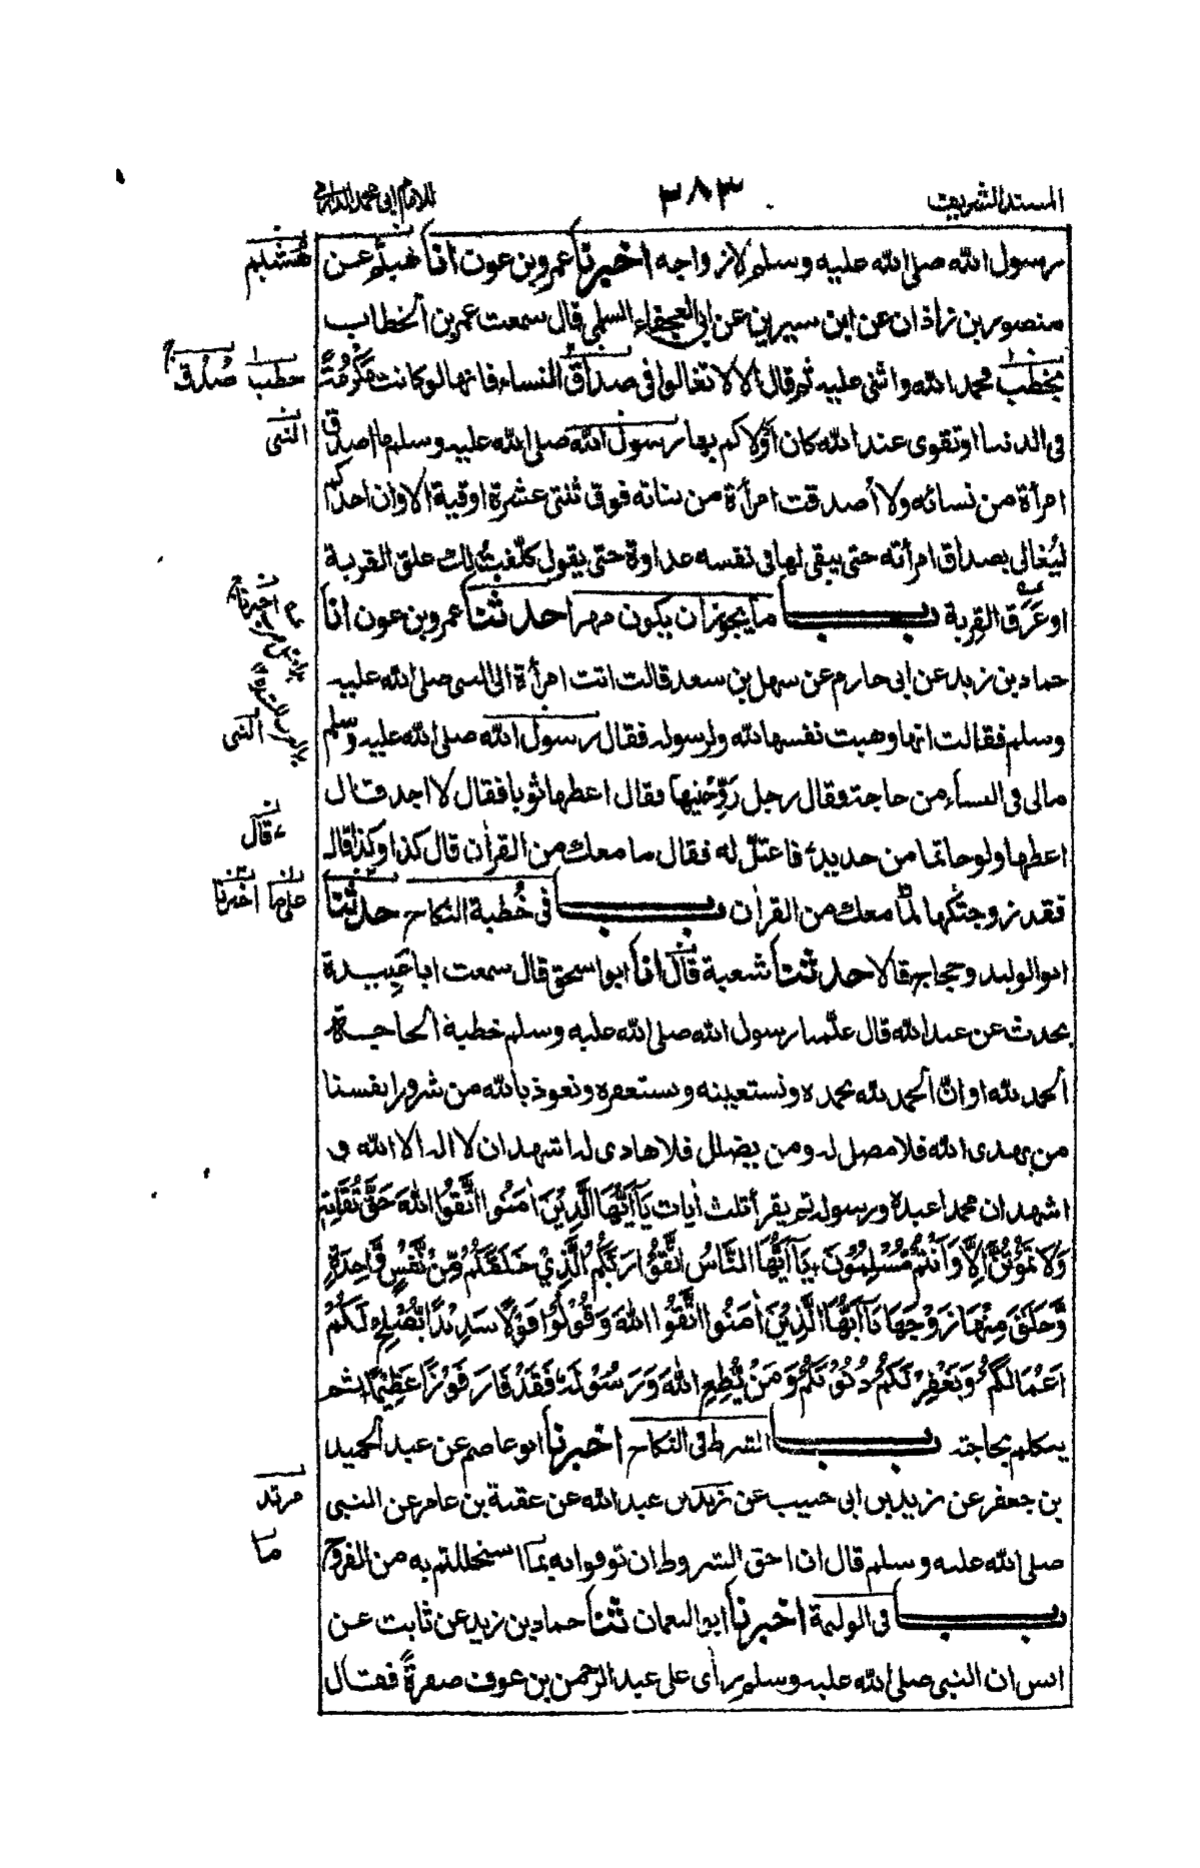 المسند الشريف
٣٨٣
للامام ابى محمد الدارمى
رسول الله صلى الله عليه وسلم لازواجه اخبرنا عمرو بن عون انا هشيم عن
هشيم
منصور بن زاذان عن ابن سيرين عن ابى العجفاء السلمى قال سمعت عمر بن الخطاب
يخطب محمد الله واثنى عليه ثم قال الا لا تغالوا فى صداق النساء فانها لو كانت مكرمة
خطب صُدُق
فى الدنيا او تقوى عند الله كان اولاكم بها رسول الله صلى الله عليه وسلم ما اصدق
النبى
امرأة من نسائه ولا أصدقت امرأة من بناته فوق ثنتى عشرة اوقية الا وان احدكم
ليُغالى بصداق امرأته حتى يبقى لها فى نفسه عداوة حتى يقول كلّفتُ لك علق القربة
او عَرَق القِربة بــاب ما يجوز ان يكون مهرا حدثنا عمرو بن عون انا
حماد بن زيد عن ابى حازم عن سهل بن سعد قالت اتت امرأة الى النبى صلى الله عليه
وسلم فقالت انها وهبت نفسها لله ولرسوله فقال رسول الله صلى الله عليه وسلم
النبى
مالى فى النساء من حاجة وقال رجل زوّجنيها فقال اعطها ثوبا فقال لا اجد قال
اعطها ولو خاتما من حديد فاعتلّ له فقال ما معك من القرآن قال كذا وكذا قال
قال
فقد زوجتكها لمّا معك من القرآن بــاب فى خُطبة النكاح حدثنا
اخبرنا
ابو الوليد وحجاج قالا حدثنا شعبة قال انا ابو اسحق قال سمعت ابا عبيدة
يحدث عن عبد الله قال علّمنا رسول الله صلى الله عليه وسلم خطبة الحاجة
الحمد لله او انّ الحمد لله نحمده ونستعينه ونستغفره ونعوذ بالله من شرور انفسنا
من يهدى الله فلا مضل له ومن يضلل فلا هادى له اشهد ان لا اله الا الله و
اشهد ان محمدا عبده ورسوله ثم يقرأ ثلث اٰيات يَآ اَيُّهَا الَّذِيْنَ اٰمَنُوا اتَّقُوا اللهَ حَقَّ تُقَاتِهٖ
وَلَا تَمُوْتُنَّ اِلَّا وَاَنْتُمْ مُسْلِمُوْنَ يَآ اَيُّهَا النَّاسُ اتَّقُوْا رَبَّكُمُ الَّذِيْ خَلَقَكُمْ مِّنْ نَّفْسٍ وَّاحِدَةٍ
وَّخَلَقَ مِنْهَا زَوْجَهَا يَآ اَيُّهَا الَّذِيْنَ اٰمَنُوا اتَّقُوا اللهَ وَقُوْلُوْا قَوْلًا سَدِيْدًا يُّصْلِحْ لَكُمْ
اَعْمَالَكُمْ وَيَغْفِرْ لَكُمْ ذُنُوْبَكُمْ وَمَنْ يُّطِعِ اللهَ وَرَسُوْلَهٗ فَقَدْ فَازَ فَوْزًا عَظِيْمًا ثم
يتكلم بحاجته بــاب الشرط فى النكاح اخبرنا ابو عاصم عن عبد الحميد
بن جعفر عن يزيد بن ابى حبيب عن زيد بن عبد الله عن عقبة بن عامر عن النبى
مرثد
صلى الله عليه وسلم قال ان احق الشروط ان توفوا به بما استحللتم به من الفروج
ما
بــاب فى الوليمة اخبرنا ابو النعمان ثنا حماد بن زيد عن ثابت عن
انس ان النبى صلى الله عليه وسلم راٰى على عبد الرحمن بن عوف صفرةً فقال